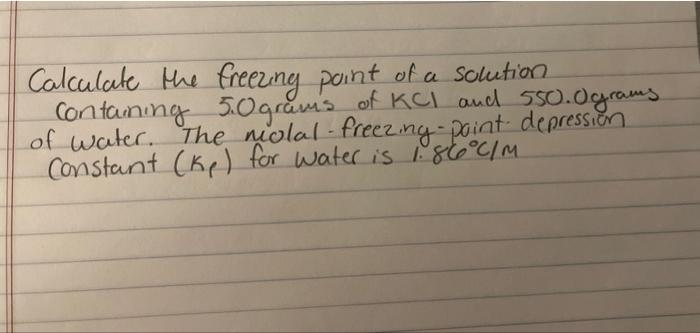 Calculate the freezing point of a solution
containing 5.0grams of KCl and 550.0grams
of water. The molal-freezing-point depression
Constant (Kf) for water is 1.86°C/M